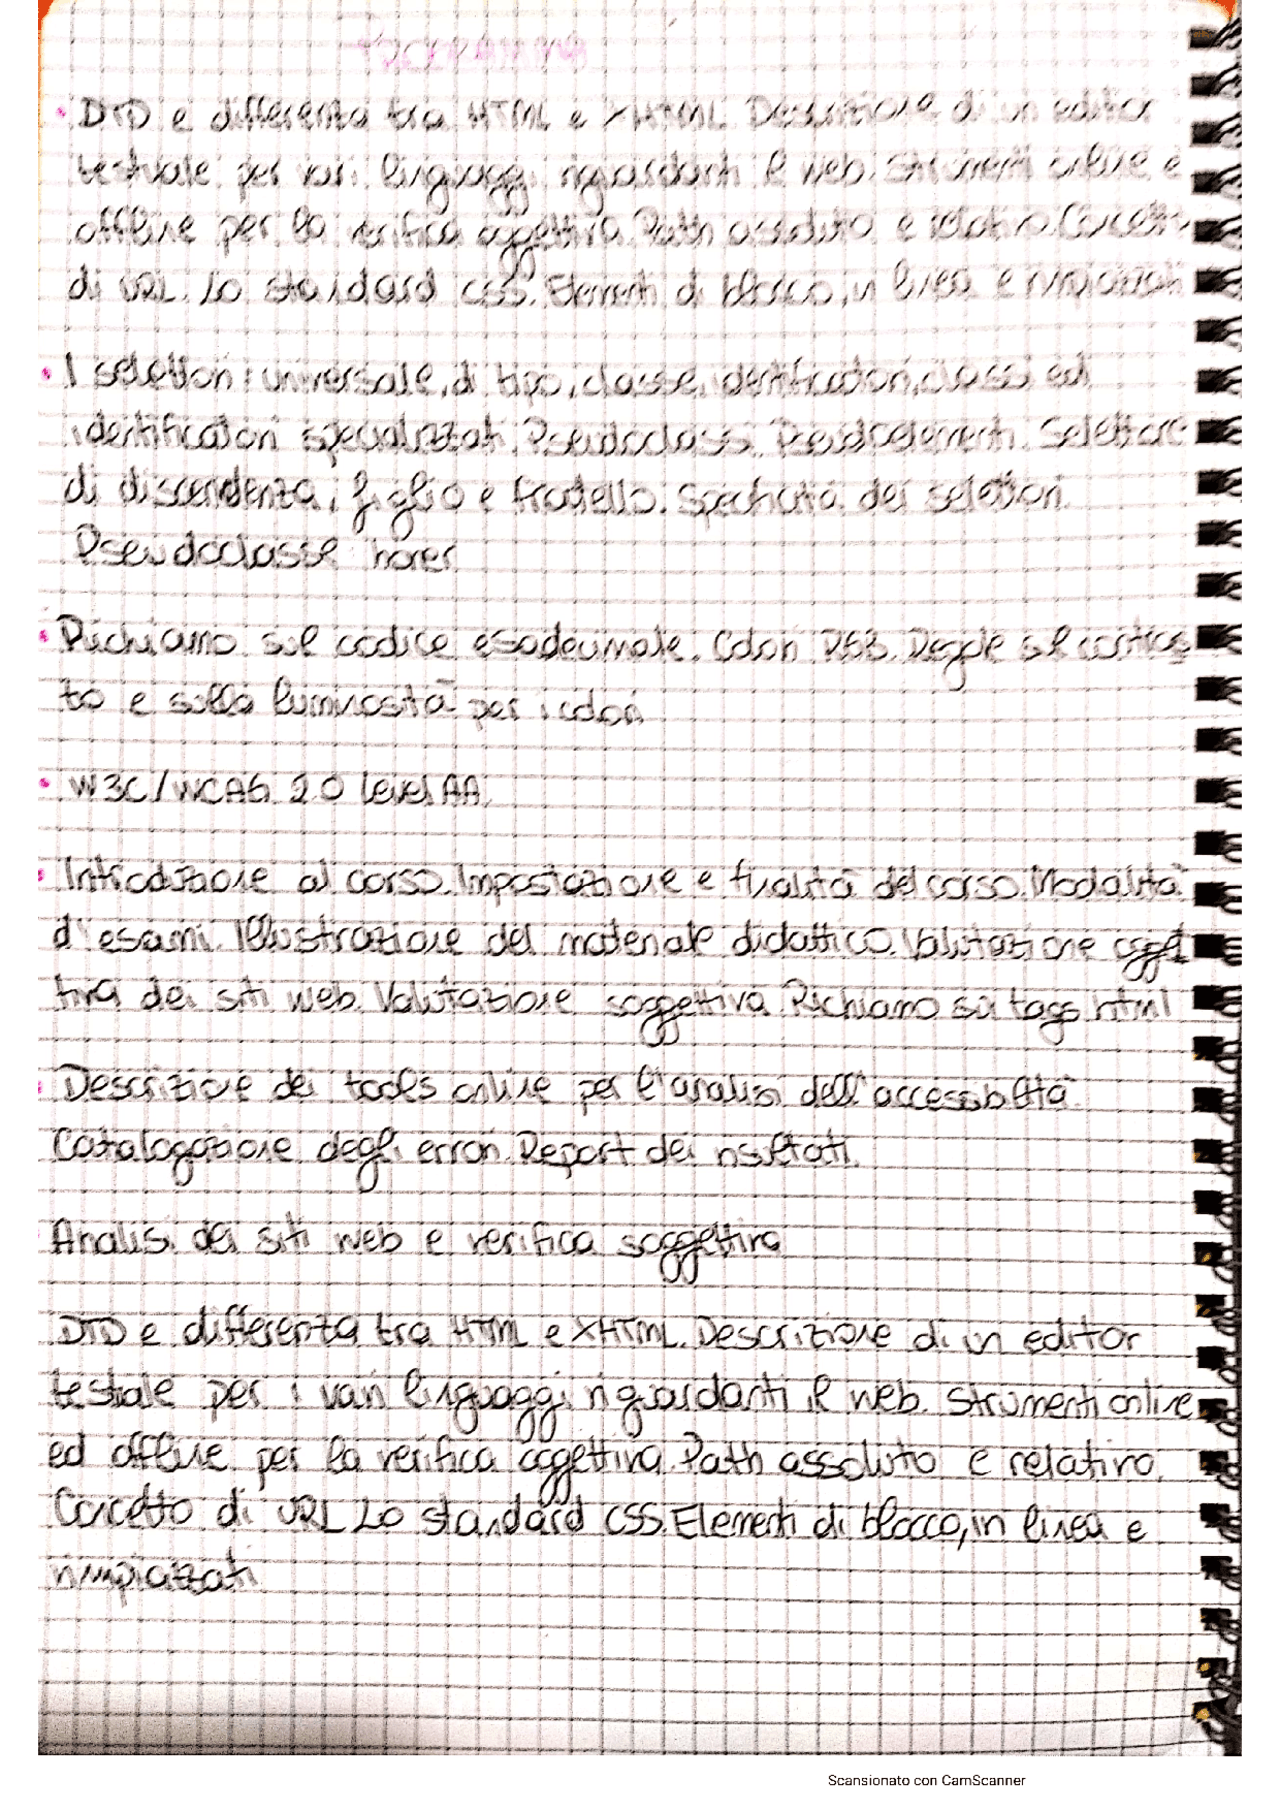 PROGRAMMA
• DTD e differenza tra HTML e XHTML Descrizione di un editor
testuale per vari linguaggi riguardanti il web. Strumenti online e
offline per la verifica oggettiva. Path assoluto e relativo. Concetto
di URL. Lo standard CSS. Elementi di blocco, in linea e rimpiazzati
• I selettori: universale, di tipo, classe, identificatori, classi ed
identificatori specializzati. Pseudoclassi. Pseudoelementi. Selettore
di discendenza, figlio e fratello. Specificità dei selettori.
Pseudoclasse hover
• Richiamo sul codice esadecimale. Colori RGB. Regole sul contras
to e sulla luminosità per i colori
• W3C/WCAG 2.0 Level AA.
• Introduzione al corso. Impostazione e finalità del corso. Modalità
d'esami. Illustrazione del materiale didattico. Valutazione ogget
tiva dei siti web. Valutazione soggettiva Richiamo sui tags html
• Descrizione dei tools online per l'analisi dell'accessibilità
Catalogazione degli errori. Report dei risultati.
Analisi dei siti web e verifica soggettiva
DTD e differenza tra HTML e XHTML. Descrizione di un editor
testuale per i vari linguaggi riguardanti il web. Strumenti online
ed offline per la verifica oggettiva. Path assoluto e relativo.
Concetto di URL Lo standard CSS. Elementi di blocco, in linea e
rimpiazzati
Scansionato con CamScanner